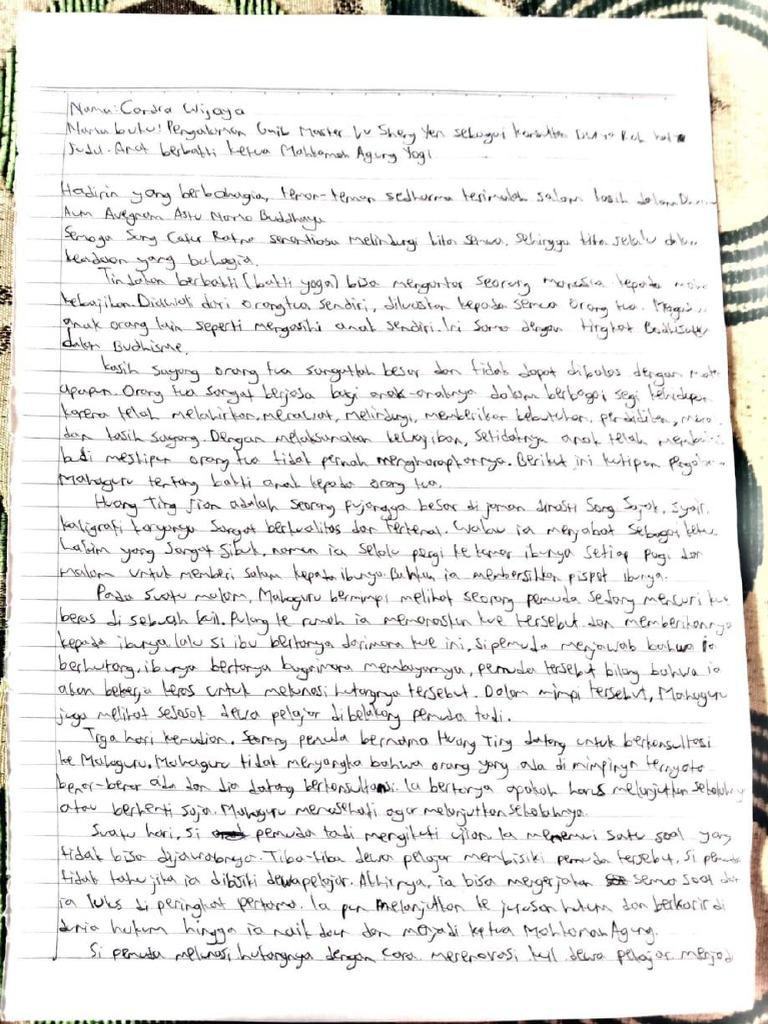 Nama: Candra Wijaya
Nama buku: Pengalaman Gaib Master Lu Sheng Yen sebagai konsultan
Judul: Anak berbakti ketua Mahkamah Agung Yogi
Hadirin yang berbahagia, teman-teman sedharma terimalah salam kasih dalam
Aum Avegnam Astu Namo Buddhaya
Semoga Sang Catur Ratna senantiasa melindungi kita semua, sehingga kita selalu dlm
keadaan yang bahagia.
Tindakan berbakti (bakti yoga) bisa mengantar seorang manusia kepada
kebajikan. Diawali dari orangtua sendiri, diluaskan kepada semua orang tua.
anak orang lain seperti mengasihi anak sendiri. Ini sama dengan tingkat Bodhisatv
dalam Budhisme.
Kasih sayang orang tua sangatlah besar dan tidak dapat dibalas dengan
apapun. Orang tua sangat berjasa bagi anak-anaknya dalam berbagai segi kehidupan
karena telah melahirkan, merawat, melindungi, memberikan kebutuhan, pendidikan,
dan kasih sayang. Dengan melaksanakan kewajiban, setidaknya anak telah
budi meskipun orang tua tidak pernah mengharapkannya. Berikut ini kutipan
Mahaguru tentang bakti anak kepada orang tua.
Huang Ting Jian adalah seorang pujangga besar di jaman dinasti Song. Sajak, syair,
kaligrafi karyanya sangat berkualitas dan terkenal. Walau ia menjabat sebagai ketua
hakim yang sangat sibuk, namun ia selalu pergi ke kamar ibunya setiap pagi dan
malam untuk memberi salam kepada ibunya. Bahkan ia membersihkan pispot ibunya.
Pada suatu malam, Mahaguru bermimpi melihat seorang pemuda sedang mencuri kue
beras di sebuah kuil. Pulang ke rumah ia memanaskan kue tersebut dan memberikannya
kepada ibunya. lalu si ibu bertanya darimana kue ini, si pemuda menjawab bahwa ia
berhutang. ibunya bertanya bagaimana membayarnya, pemuda tersebut bilang bahwa ia
akan bekerja keras untuk melunasi hutangnya tersebut. Dalam mimpi tersebut, Mahaguru
juga melihat sesosok dewa pelajar di belakang pemuda tadi.
Tiga hari kemudian. Seorang pemuda bernama Huang Ting datang untuk berkonsultasi
ke Mahaguru. Mahaguru tidak menyangka bahwa orang yang ada di mimpinya ternyata
benar-benar ada dan dia datang berkonsultansi. Ia bertanya apakah harus melanjutkan sekolahny
atau berhenti saja. Mahaguru menasehati agar melanjutkan sekolahnya.
Suatu hari, si pemuda tadi mengikuti ujian. Ia menemui satu soal yang
tidak bisa dijawabnya. Tiba-tiba dewa pelajar membisiki pemuda tersebut. Si pemuda
tidak tahu jika ia dibisiki dewa pelajar. Akhirnya, ia bisa mengerjakan semua soal dan
ia lulus di peringkat pertama. Ia pun melanjutkan ke jurusan hukum dan berkarir di
dunia hukum hingga ia naik daun dan menjadi ketua Mahkamah Agung.
Si pemuda melunasi hutangnya dengan cara merenovasi kuil dewa pelajar menjad